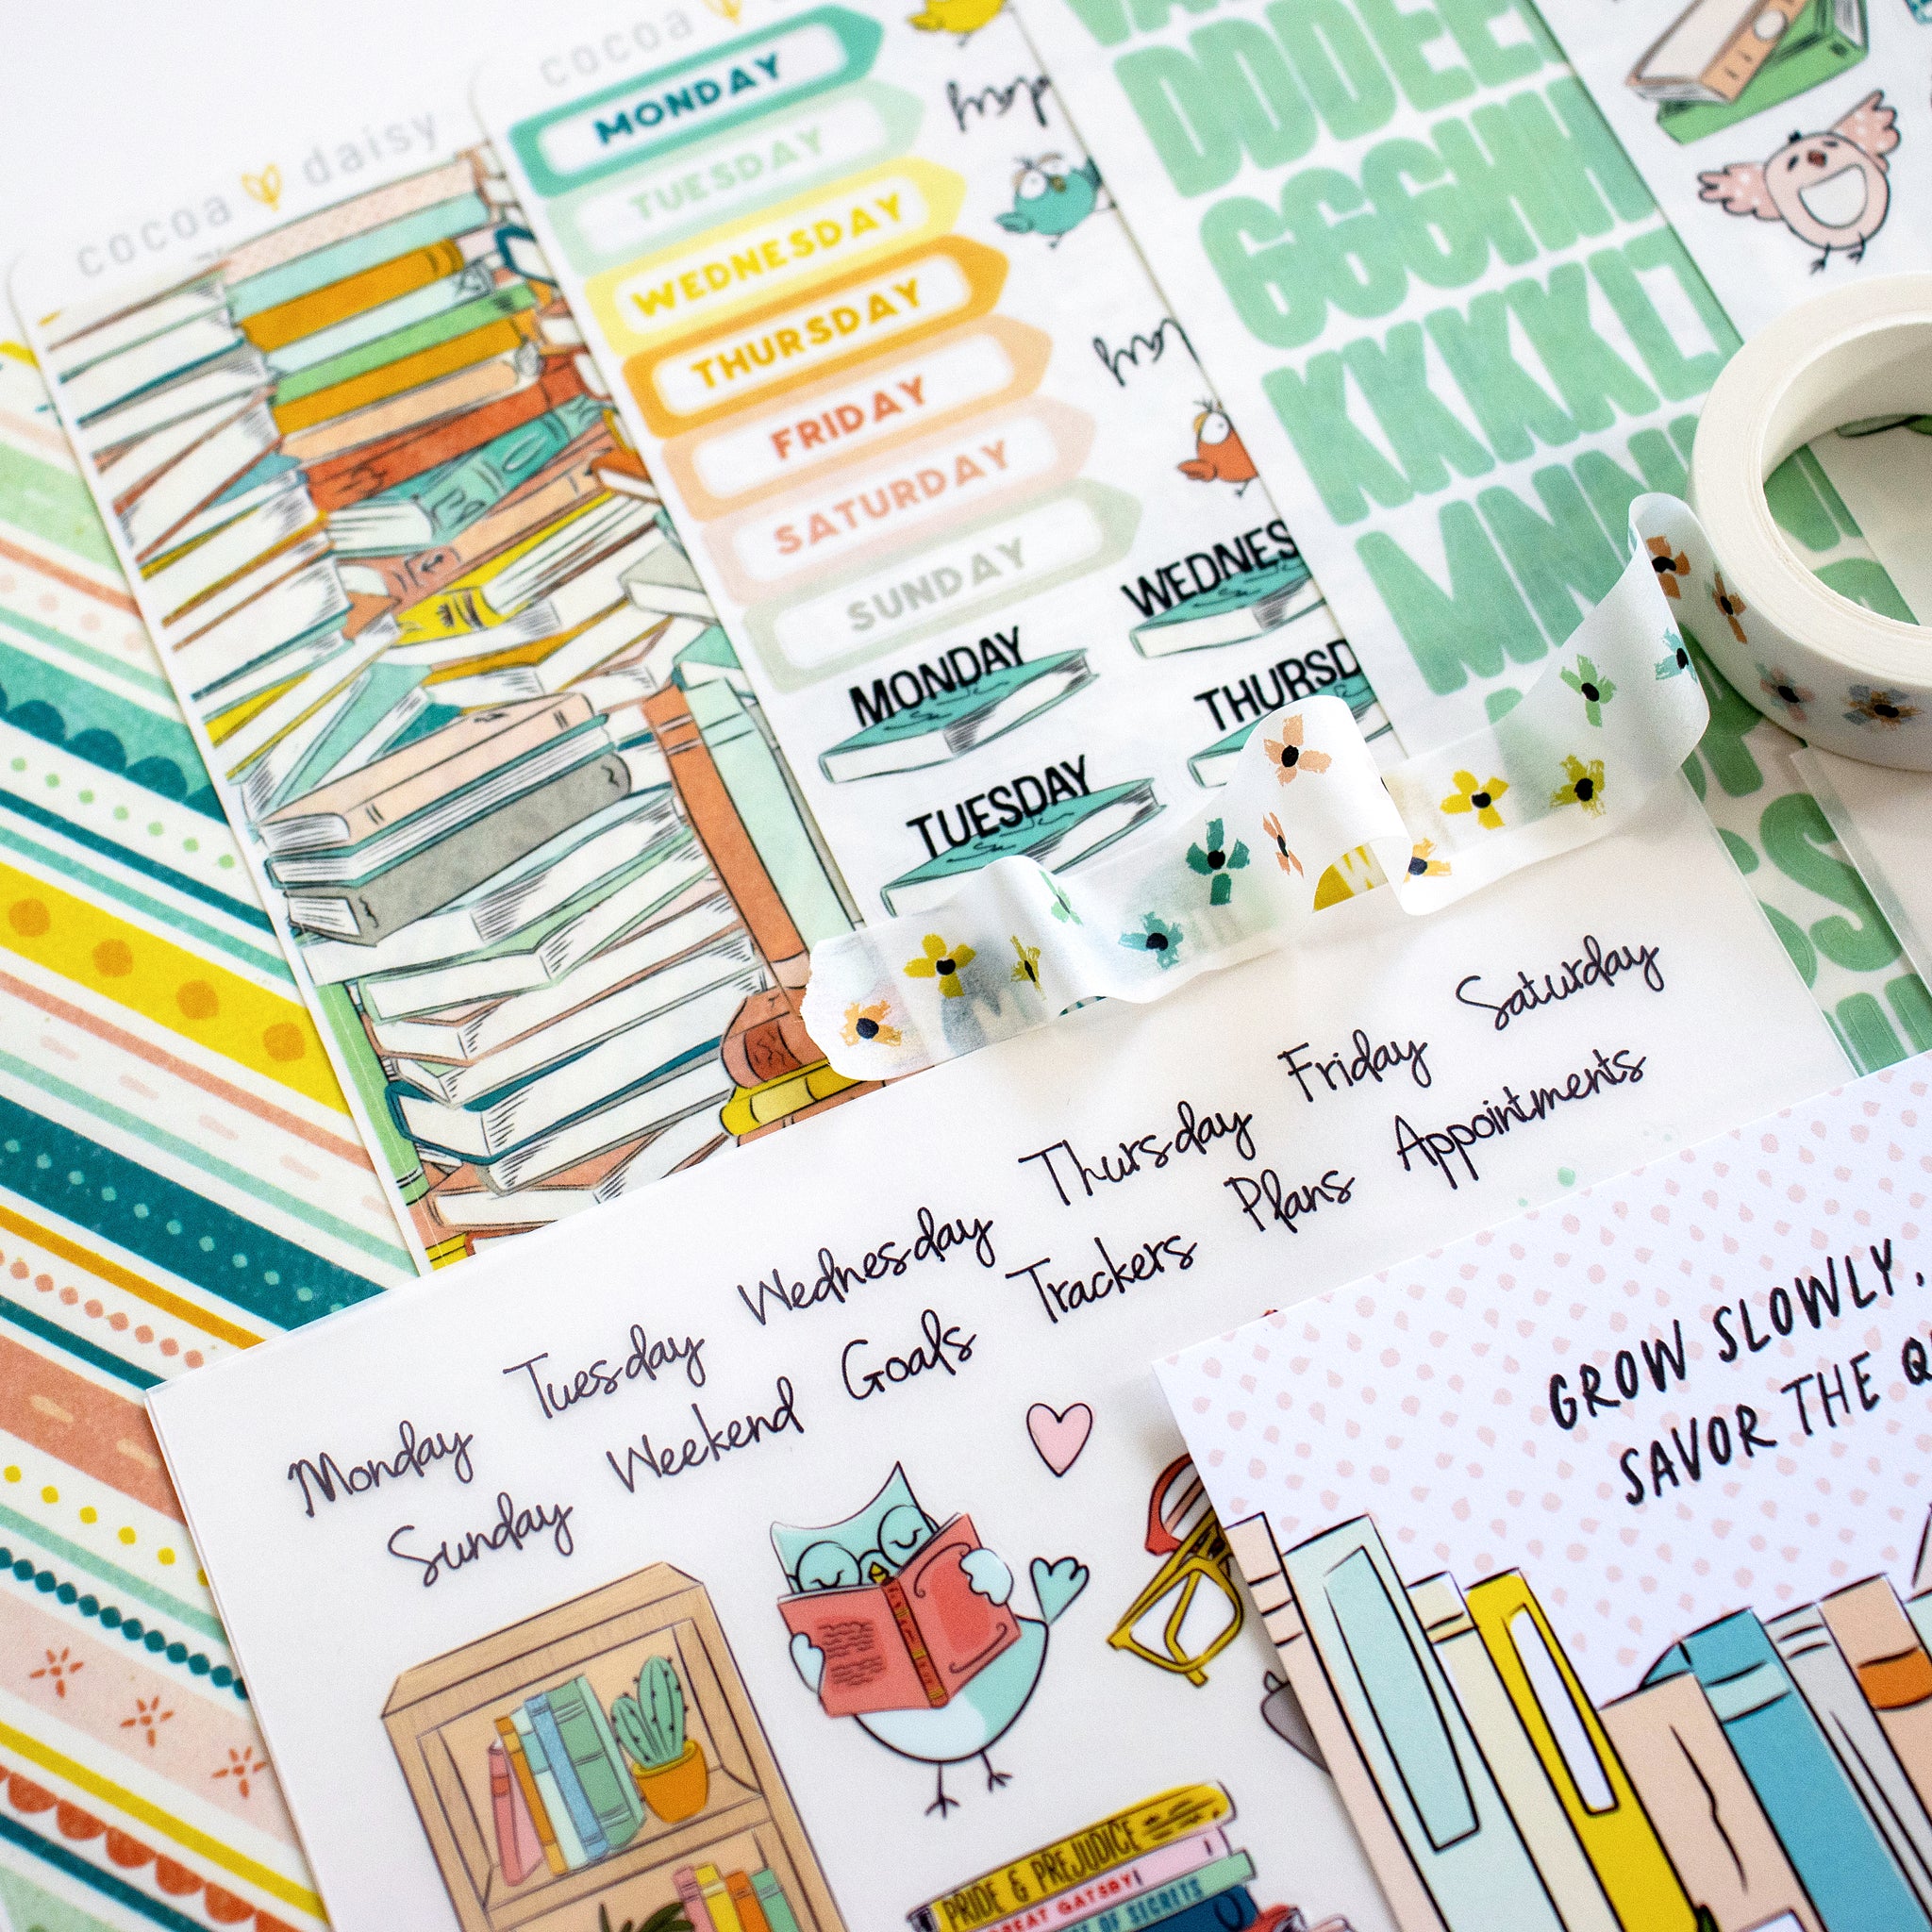 cocoa daisy
cocoa
MONDAY
TUESDAY
WEDNESDAY
THURSDAY
FRIDAY
SATURDAY
SUNDAY
MONDAY
WEDNES
TUESDAY
THURSD
DDDEE
GGGHHH
KKKKL
MNN
Monday Tuesday Wednesday Thursday Friday Saturday
Sunday Weekend Goals Trackers Plans Appointments
GROW SLOWLY.
SAVOR THE Q
PRIDE & PREJUDICE
GREAT GATSBY
OF SECRETS